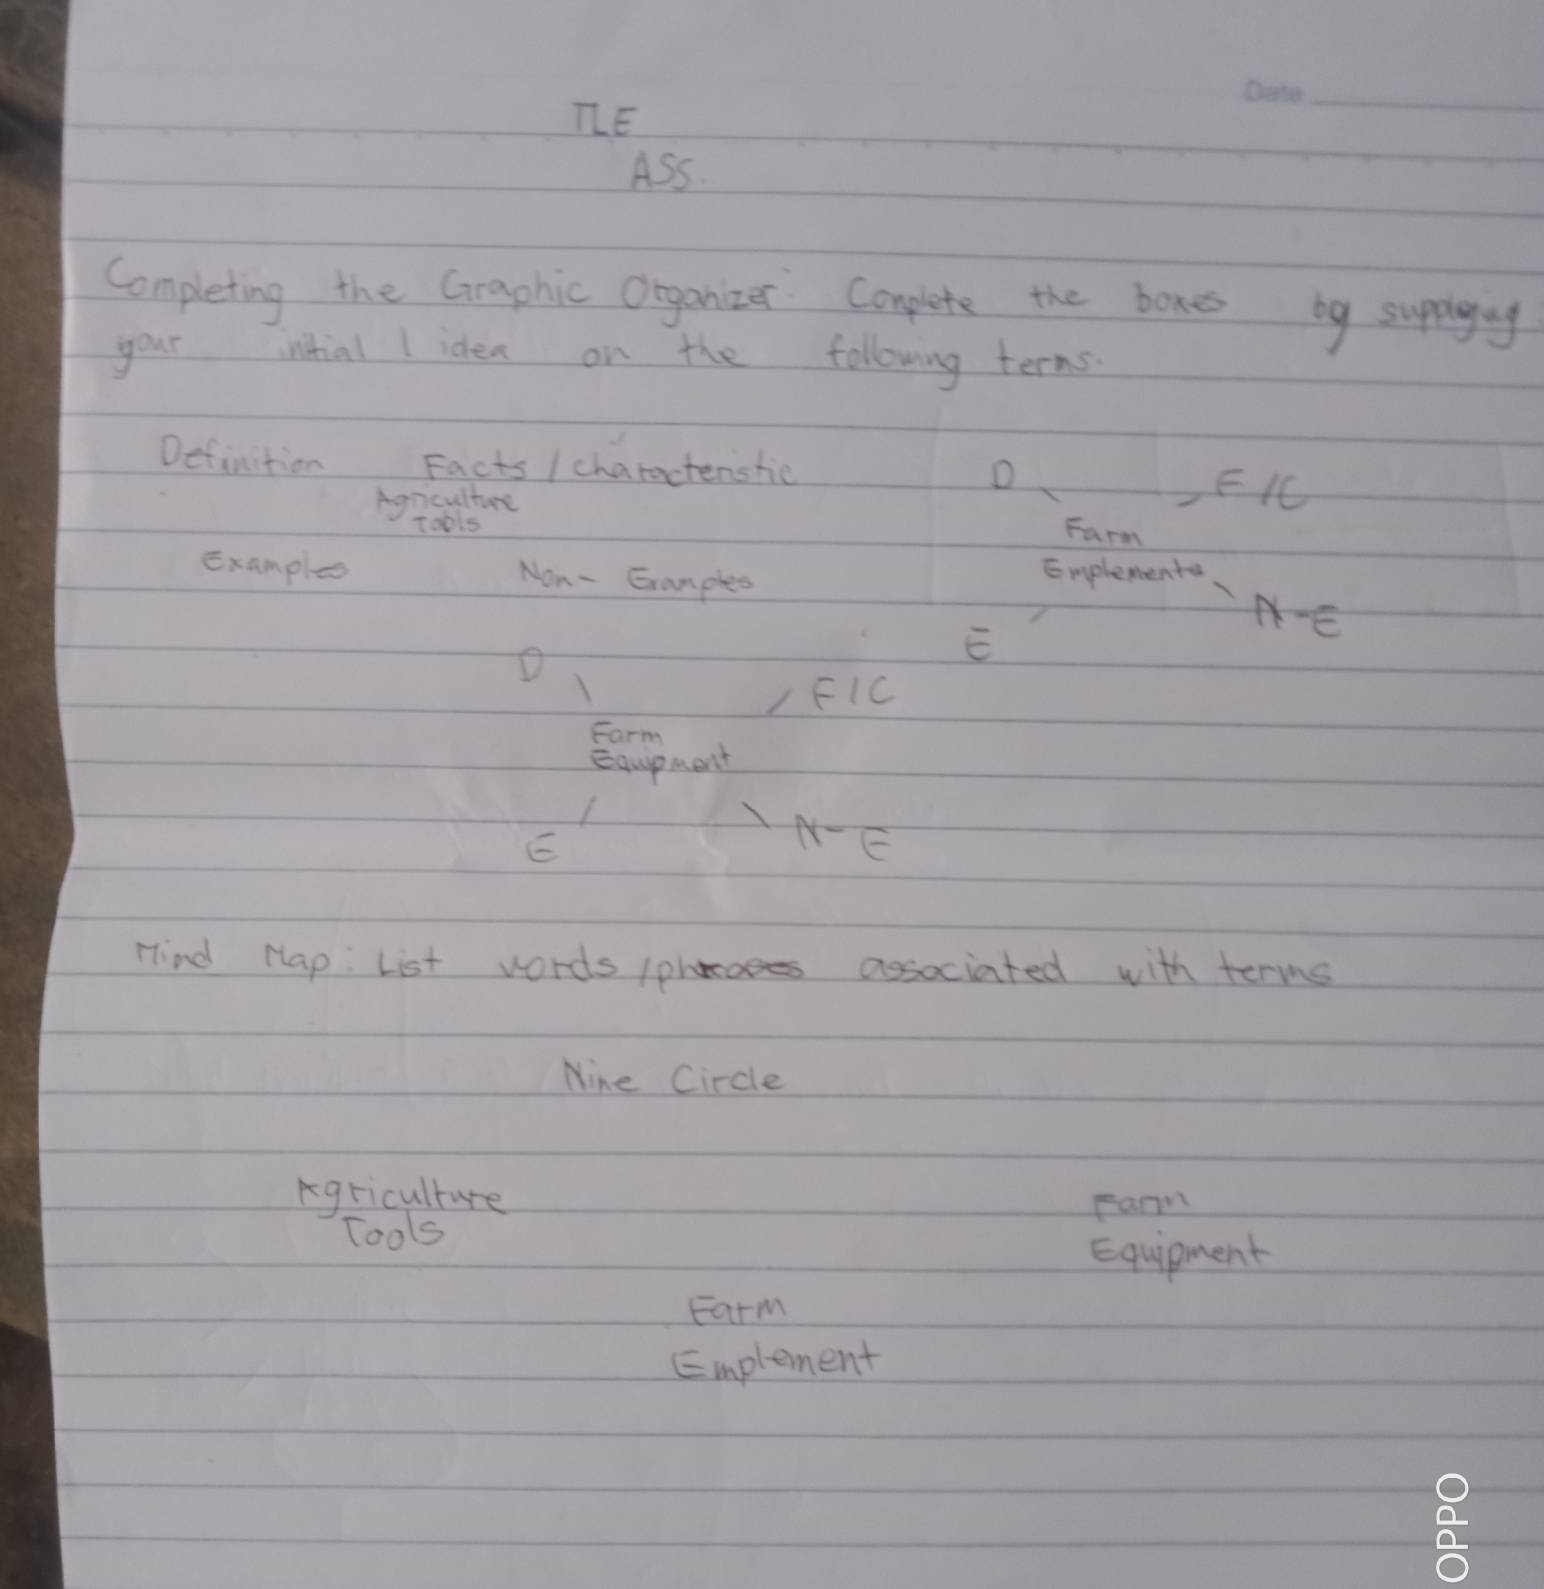 Date
TLE
ASS.
Completing the Graphic Organizer: Complete the boxes by supplying
your initial / idea on the following terms.
Definition Facts / characteristic
Agriculture
Tools
Examples Non- Examples
D F/C
Farm
Emplements
E N-E
D F/C
Farm
Equipment
E N-E
Mind Map: List words /phrases associated with terms
Nine Circle
Agriculture
Tools
Farm
Equipment
Farm
Emplement
OPPO